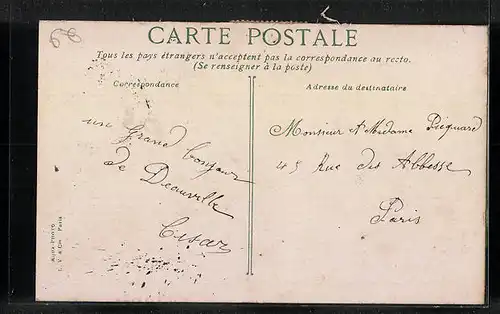 68
CARTE POSTALE
Tous les pays étrangers n'acceptent pas la correspondance au recto.
(Se renseigner à la poste)
Correspondance
un Grand bonjour
de Deauville
Cesar
Adresse du destinataire
Monsieur et Madame Picquard
45 Rue des Abbesse
Paris
Aqua-Photo
L. V. & Cie Paris